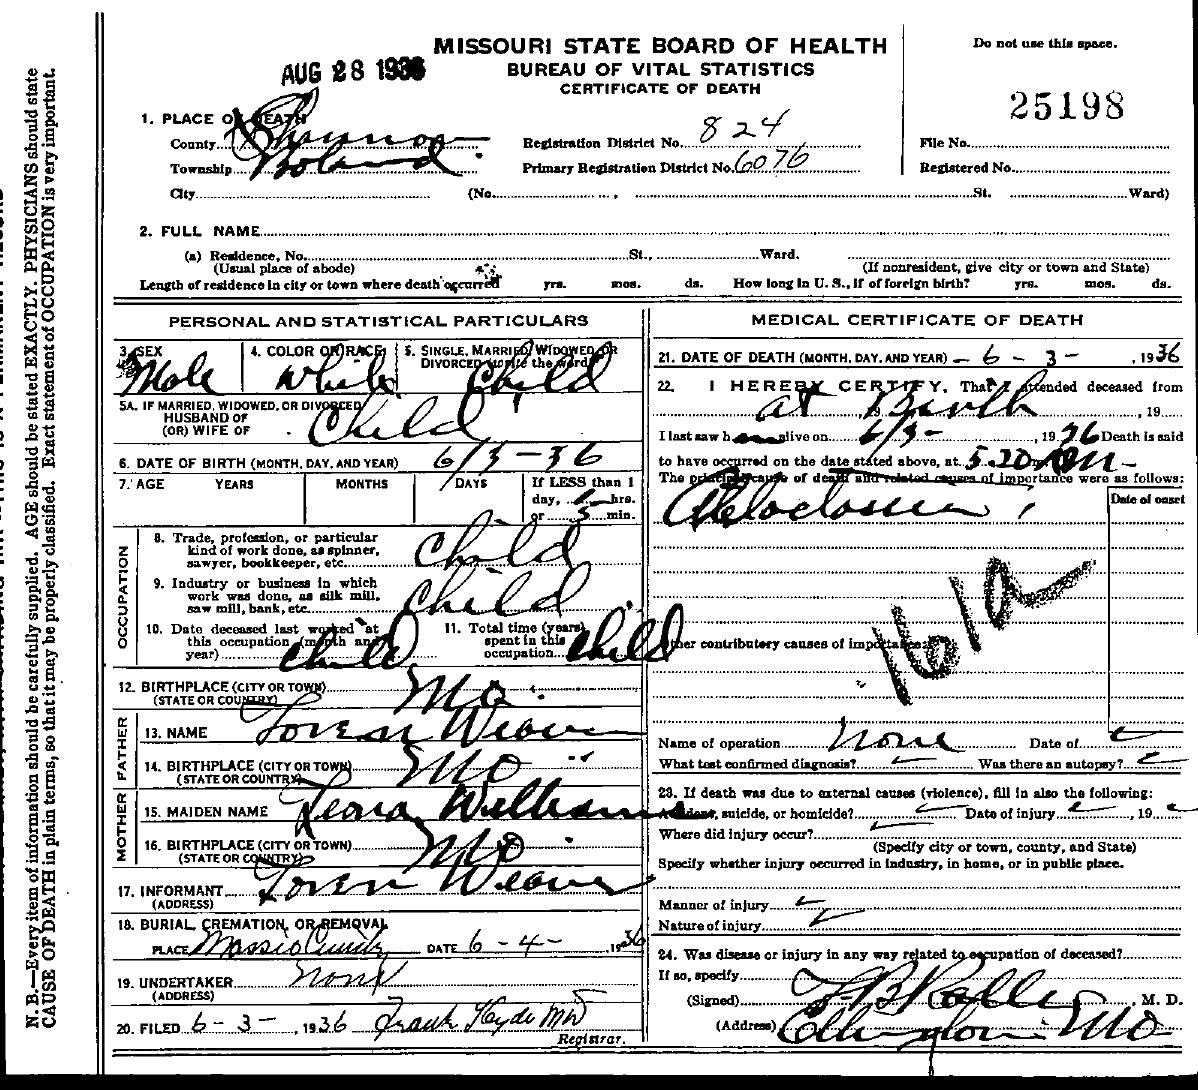 MISSOURI STATE BOARD OF HEALTH
BUREAU OF VITAL STATISTICS
CERTIFICATE OF DEATH
Do not use this space.
AUG 28 1936
25198
1. PLACE OF DEATH
County Shannon Registration District No. 824 File No.
Township Primary Registration District No. 6076 Registered No.
City (No. , St. Ward)
2. FULL NAME
(a) Residence, No. St., Ward.
(Usual place of abode) (If nonresident, give city or town and State)
Length of residence in city or town where death occurred yrs. mos. ds. How long in U. S., if of foreign birth? yrs. mos. ds.
PERSONAL AND STATISTICAL PARTICULARS
3. SEX Male 4. COLOR OR RACE White 5. SINGLE, MARRIED, WIDOWED, OR DIVORCED (write the word) Child
5A. IF MARRIED, WIDOWED, OR DIVORCED
HUSBAND OF
(OR) WIFE OF Child
6. DATE OF BIRTH (MONTH, DAY, AND YEAR) 6/3-36
7. AGE YEARS MONTHS DAYS If LESS than 1
day, hrs.
or 5 min.
OCCUPATION
8. Trade, profession, or particular
kind of work done, as spinner,
sawyer, bookkeeper, etc. Child
9. Industry or business in which
work was done, as silk mill,
saw mill, bank, etc. Child
10. Date deceased last worked at
this occupation (month and
year) Child
11. Total time (years)
spent in this
occupation Child
12. BIRTHPLACE (CITY OR TOWN)
(STATE OR COUNTRY) Mo
FATHER
13. NAME Loren Weaver
14. BIRTHPLACE (CITY OR TOWN)
(STATE OR COUNTRY) Mo
MOTHER
15. MAIDEN NAME Leona Williams
16. BIRTHPLACE (CITY OR TOWN)
(STATE OR COUNTRY) Mo
17. INFORMANT Loren Weaver
(ADDRESS)
18. BURIAL, CREMATION, OR REMOVAL
PLACE DATE 6-4- 1936
19. UNDERTAKER None
(ADDRESS)
20. FILED 6-3-, 1936 Frank Hyde MD
Registrar.
MEDICAL CERTIFICATE OF DEATH
21. DATE OF DEATH (MONTH, DAY, AND YEAR) - 6-3-, 1936
22. I HEREBY CERTIFY, That I attended deceased from
at Birth , 19
I last saw h alive on 6/3-, 1936 Death is said
to have occurred on the date stated above, at 5.20 m.
The principal cause of death and related causes of importance were as follows:
Date of onset
161a
Other contributory causes of importance:
Name of operation None Date of
What test confirmed diagnosis? Was there an autopsy?
23. If death was due to external causes (violence), fill in also the following:
Accident, suicide, or homicide? Date of injury , 19
Where did injury occur?
(Specify city or town, county, and State)
Specify whether injury occurred in industry, in home, or in public place.
Manner of injury
Nature of injury
24. Was disease or injury in any way related to occupation of deceased?
If so, specify
(Signed) , M. D.
(Address) Ellington Mo
N. B.—Every item of information should be carefully supplied. AGE should be stated EXACTLY. PHYSICIANS should state
CAUSE OF DEATH in plain terms, so that it may be properly classified. Exact statement of OCCUPATION is very important.